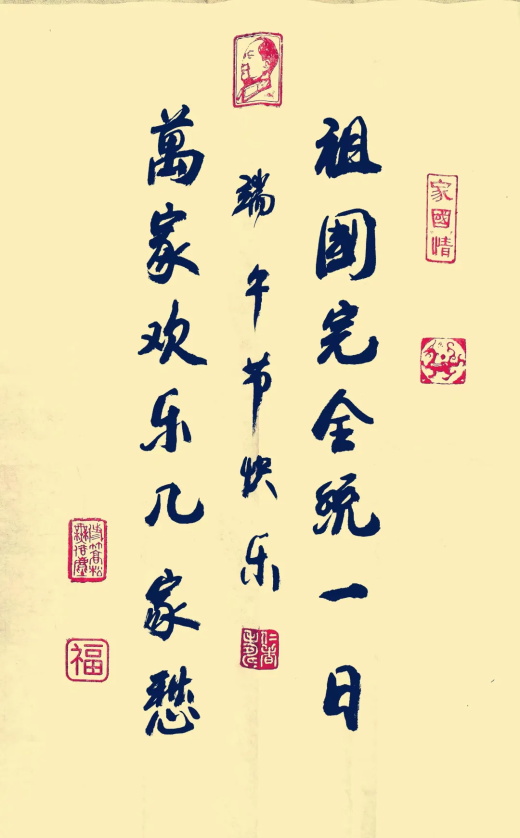 家國情
祖國完全統一日
端午节快乐
萬家欢乐几家愁
福